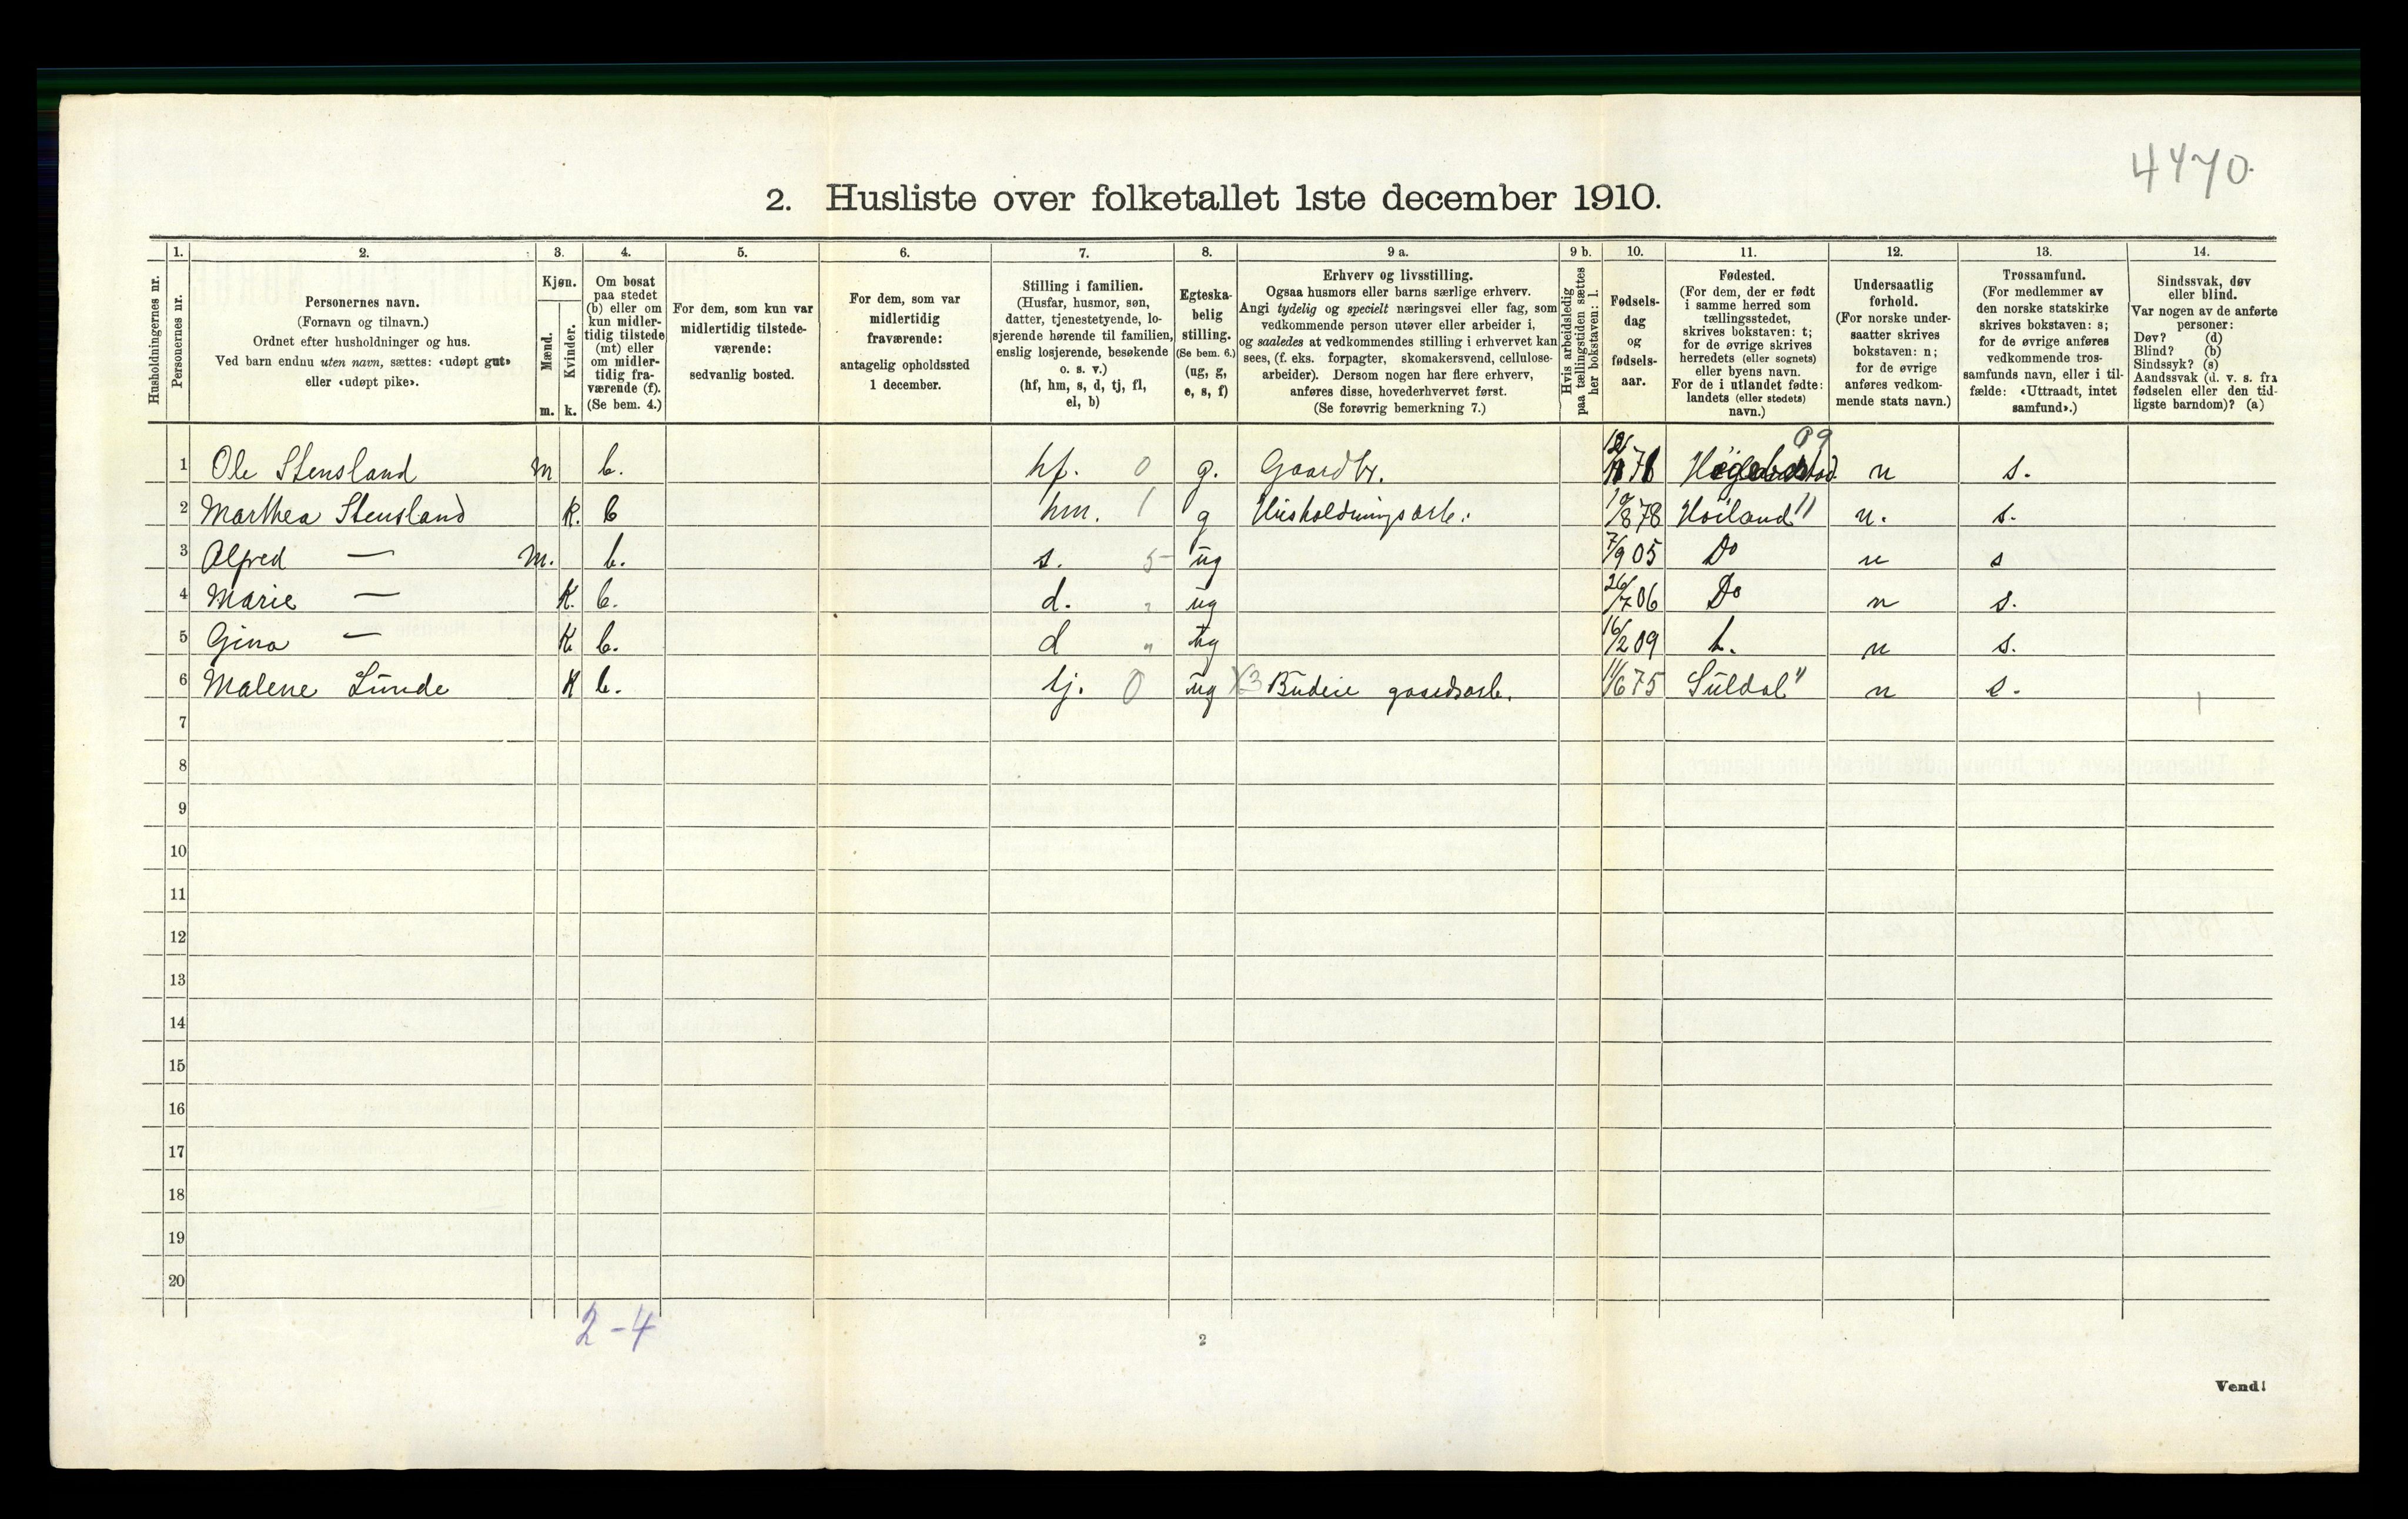 4470.
2. Husliste over folketallet 1ste december 1910.
Husholdningernes nr.
1.
Personernes nr.
2.
Personernes navn.
(Fornavn og tilnavn.)
Ordnet efter husholdninger og hus.
Ved barn endnu uten navn, sættes: «udøpt gut»
eller «udøpt pike».
3.
Kjøn.
Mænd.
Kvinder.
m. k.
4.
Om bosat
paa stedet
(b) eller om
kun midler-
tidig tilstede
(mt) eller
om midler-
tidig fra-
værende (f).
(Se bem. 4.)
5.
For dem, som kun var
midlertidig tilstede-
værende:
sedvanlig bosted.
6.
For dem, som var
midlertidig
fraværende:
antagelig opholdssted
1 december.
7.
Stilling i familien.
(Husfar, husmor, søn,
datter, tjenestetyende, lo-
sjerende hørende til familien,
enslig losjerende, besøkende
o. s. v.)
(hf, hm, s, d, tj, fl,
el, b)
8.
Egteska-
belig
stilling.
(Se bem. 6.)
(ug, g,
e, s, f)
9 a.
Erhverv og livsstilling.
Ogsaa husmors eller barns særlige erhverv.
Angi tydelig og specielt næringsvei eller fag, som
vedkommende person utøver eller arbeider i,
og saaledes at vedkommendes stilling i erhvervet kan
sees, (f. eks. forpagter, skomakersvend, cellulose-
arbeider). Dersom nogen har flere erhverv,
anføres disse, hovederhvervet først.
(Se forøvrig bemerkning 7.)
9 b.
Hvis arbeidsledig
paa tællingstiden sættes
her bokstaven: l.
10.
Fødsels-
dag
og
fødsels-
aar.
11.
Fødested.
(For dem, der er født
i samme herred som
tællingsstedet,
skrives bokstaven: t;
for de øvrige skrives
herredets (eller sognets)
eller byens navn.
For de i utlandet fødte:
landets (eller stedets)
navn.)
12.
Undersaatlig
forhold.
(For norske under-
saatter skrives
bokstaven: n;
for de øvrige
anføres vedkom-
mende stats navn.)
13.
Trossamfund.
(For medlemmer av
den norske statskirke
skrives bokstaven: s;
for de øvrige anføres
vedkommende tros-
samfunds navn, eller i til-
fælde: «Uttraadt, intet
samfund».)
14.
Sindssvak, døv
eller blind.
Var nogen av de anførte
personer:
Døv? (d)
Blind? (b)
Sindssyk? (s)
Aandssvak (d. v. s. fra
fødselen eller den tid-
ligste barndom)? (a)
09
1 Ole Stensland m b. hf. 0 g. Gaardbr. n s.
2 Marthea Stensland K. b hm. 1 g Husholdningsarb. 10/8 78 Høiland " n. s.
3 Alfred — m. b. s. 5 ug 7/9 05 Do n s
4 Marie — K. b. d. " ug 26/7 06 Do n s.
5 Gina — K b. d " ug 16/2 09 t. n s.
6 Malene Lunde K b. tj. 0 ug X3 Budeie gaardsarb. 11/6 75 Suldal " n s.
7
8
9
10
11
12
13
14
15
16
17
18
19
20
2-4
2
Vend!